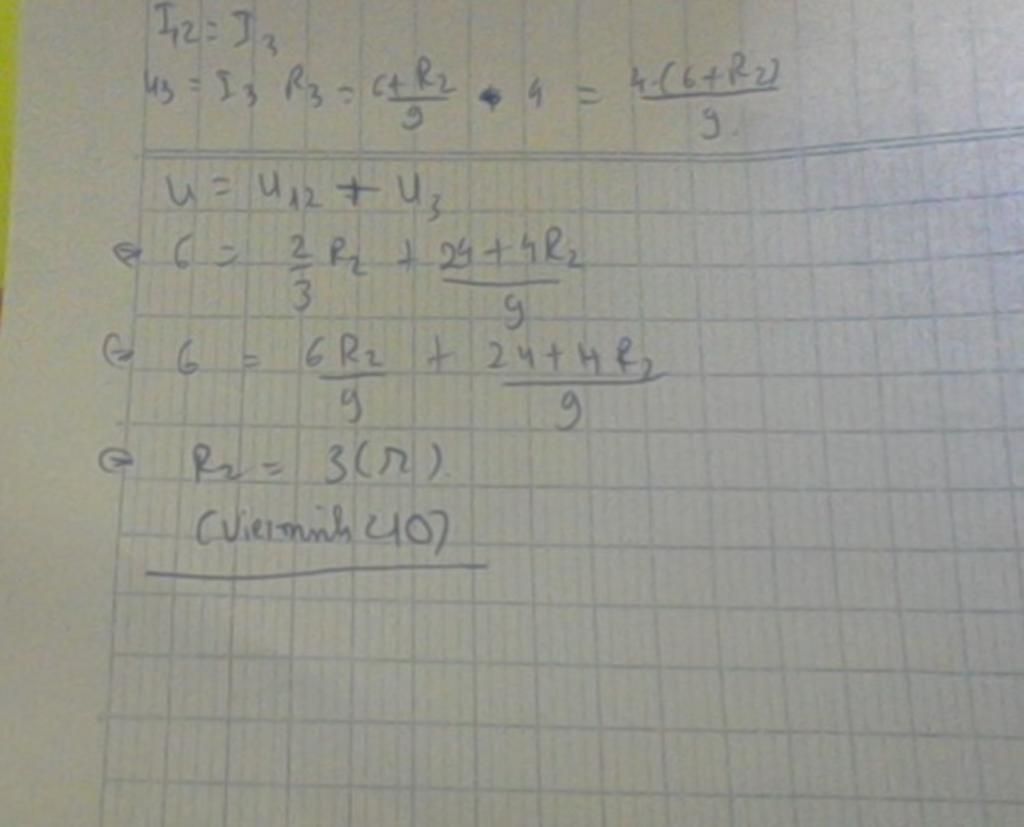 I12 = I3
U3 = I3 R3 = (6+R2)/9 • 4 = 4.(6+R2)/9.
U = U12 + U3
⇔ 6 = 2/3 R2 + (24+4R2)/9
⇔ 6 = 6R2/9 + (24+4R2)/9
⇔ R2 = 3(Ω).
(Vietminh 40)